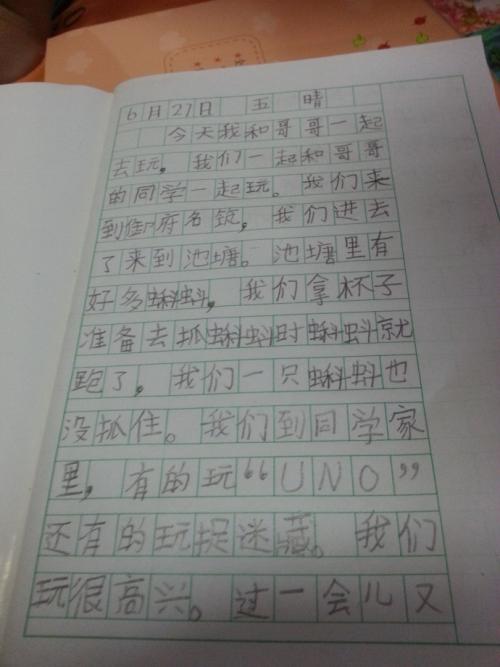 6月27日 五 晴
今天我和哥哥一起
去玩，我们一起和哥哥
的同学一起玩。我们来
到御府名筑，我们进去
了来到池塘。池塘里有
好多蝌蚪，我们拿杯子
准备去抓蝌蚪时蝌蚪就
跑了，我们一只蝌蚪也
没抓住。我们到同学家
里，有的玩“UNO”
还有的玩捉迷藏。我们
玩很高兴。过一会儿又